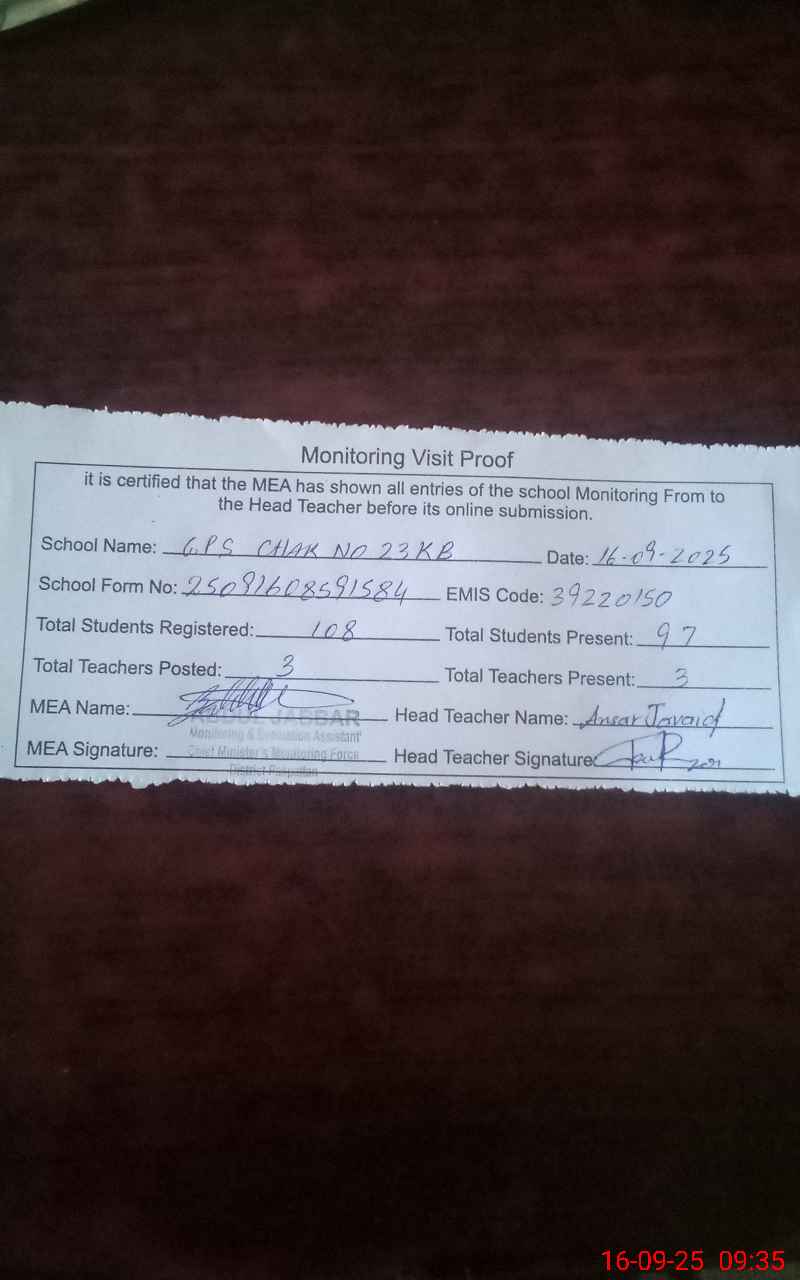 Monitoring Visit Proof
it is certified that the MEA has shown all entries of the school Monitoring From to
the Head Teacher before its online submission.
School Name: GPS CHAK NO 23KB Date: 16-09-2025
School Form No: 25091608591584 EMIS Code: 39220150
Total Students Registered: 108 Total Students Present: 97
Total Teachers Posted: 3 Total Teachers Present: 3
MEA Name: ABDUL JABBAR Head Teacher Name: Ansar Javaid
Monitoring & Evaluation Assistant
MEA Signature: Chief Minister's Monitoring Force Head Teacher Signature
District Pakpattan
16-09-25 09:35